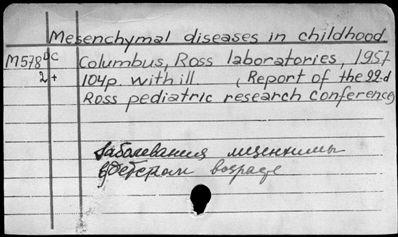 Mesenchymal diseases in childhood
M578 DC Columbus, Ross laboratories, 1957
2+ 104p. with ill , Report of the 22.d
Ross pediatric research conference
Заболевания мезенхимы
в детском возрасте